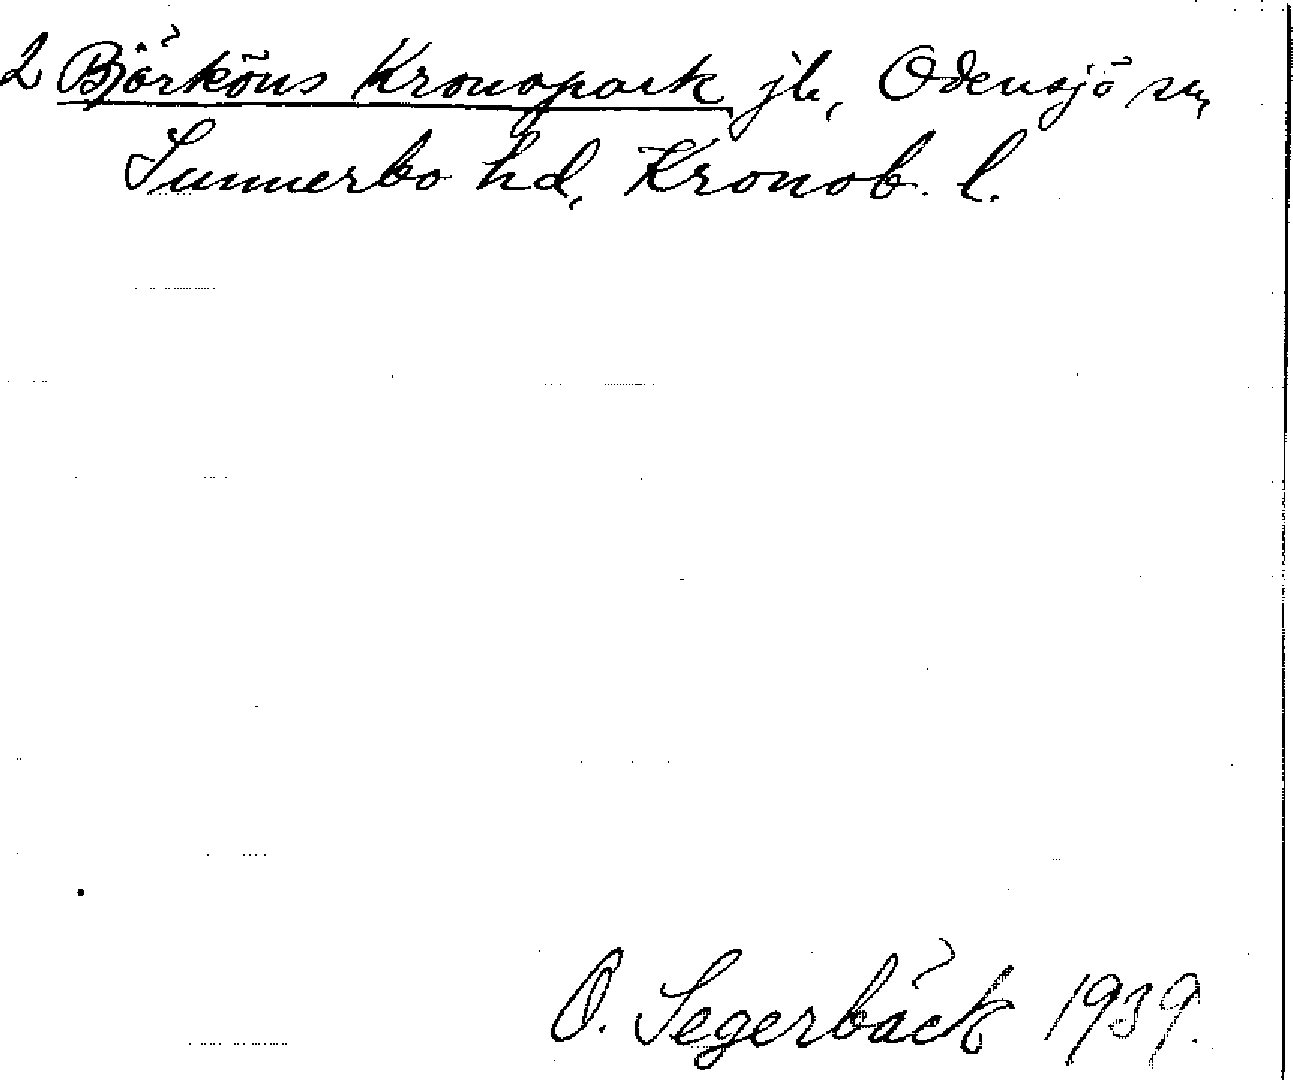 2 Björköns Kronopark jb, Odensjö sn,
Sunnerbo hd, Kronob. l.
O. Segerbäck 1939.